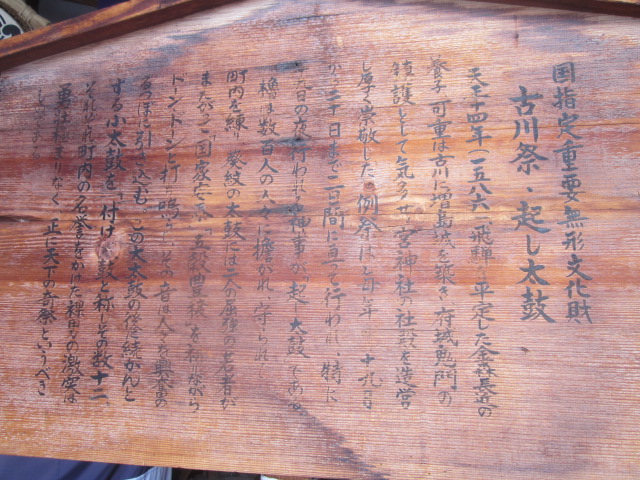 国指定重要無形文化財
古川祭・起し太鼓
天正十四年(一五八六)飛騨を平定した金森長近の
養子可重は古川に増島城を築き、府城鬼門の
鎮護として気多若宮神社の社殿を造営
し厚く崇敬した。例祭は毎年 十九日
から二十日まで二日間に亘って行われ、特に
日の夜行われる神事が「起し太鼓」である。
櫓は数百人の人々に担がれ、守られ
町内を練り 紋の太鼓には二人の屈強の若者が
またがって「国家安泰」「五穀豊穣」を祈りながら
ドーントーンと打ち鳴らし、その音は人々を興奮の
るつぼに引き込む。この大太鼓の後に続かんと
する小太鼓を「付け太鼓」と称しその数十二、
それぞれ町内の名誉をかけた裸男の激突は
勇壮極まりなく、正に天下の奇祭というべき